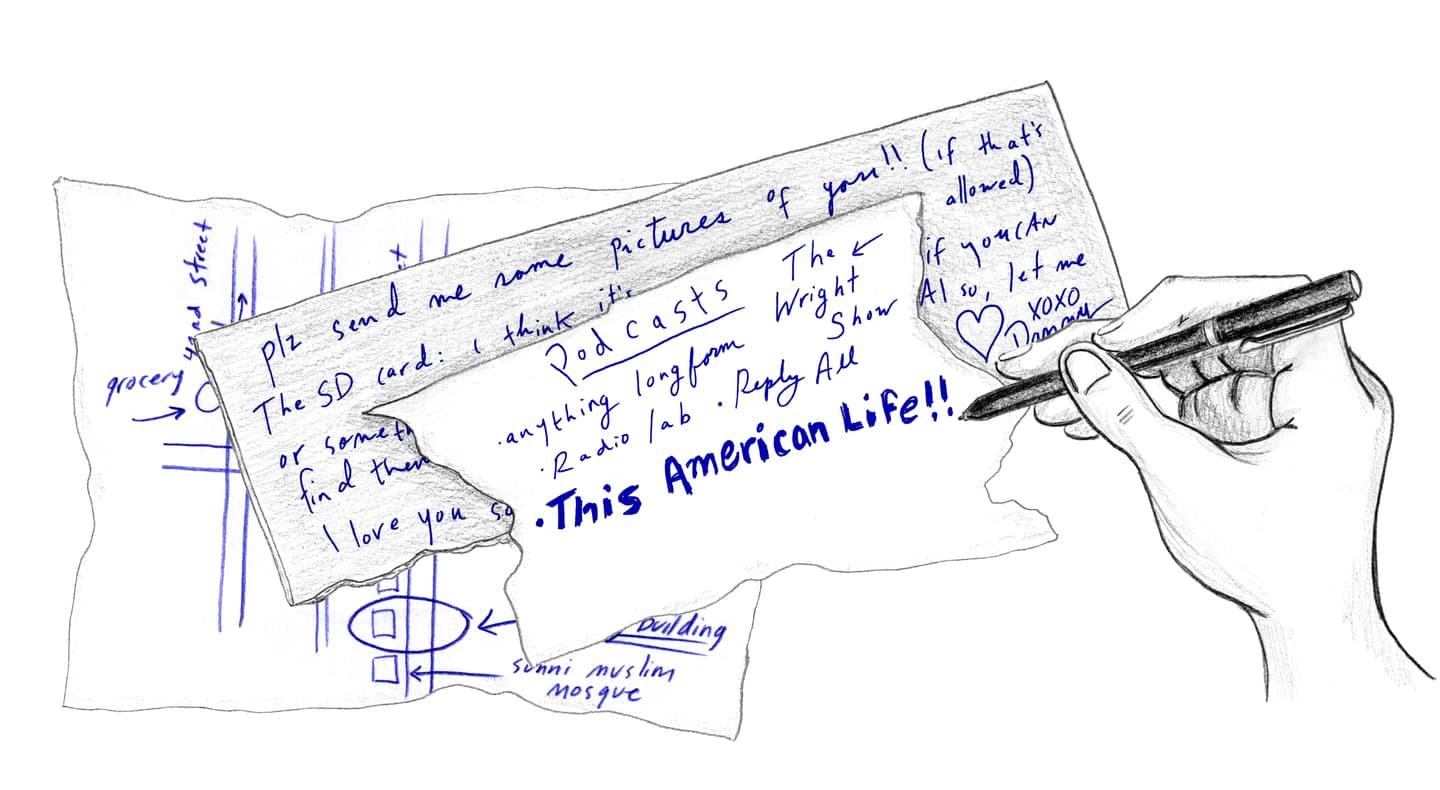 plz send me some pictures of you!! (if that's
allowed)
The SD card: I think it's
if you CAN
or
Also, let me
find
I love you
XOXO
Podcasts
The ←
Wright
Show
·anything longform
·Radio lab ·Reply All
·This American Life!!
street
grocery
building
sunni muslim
mosque